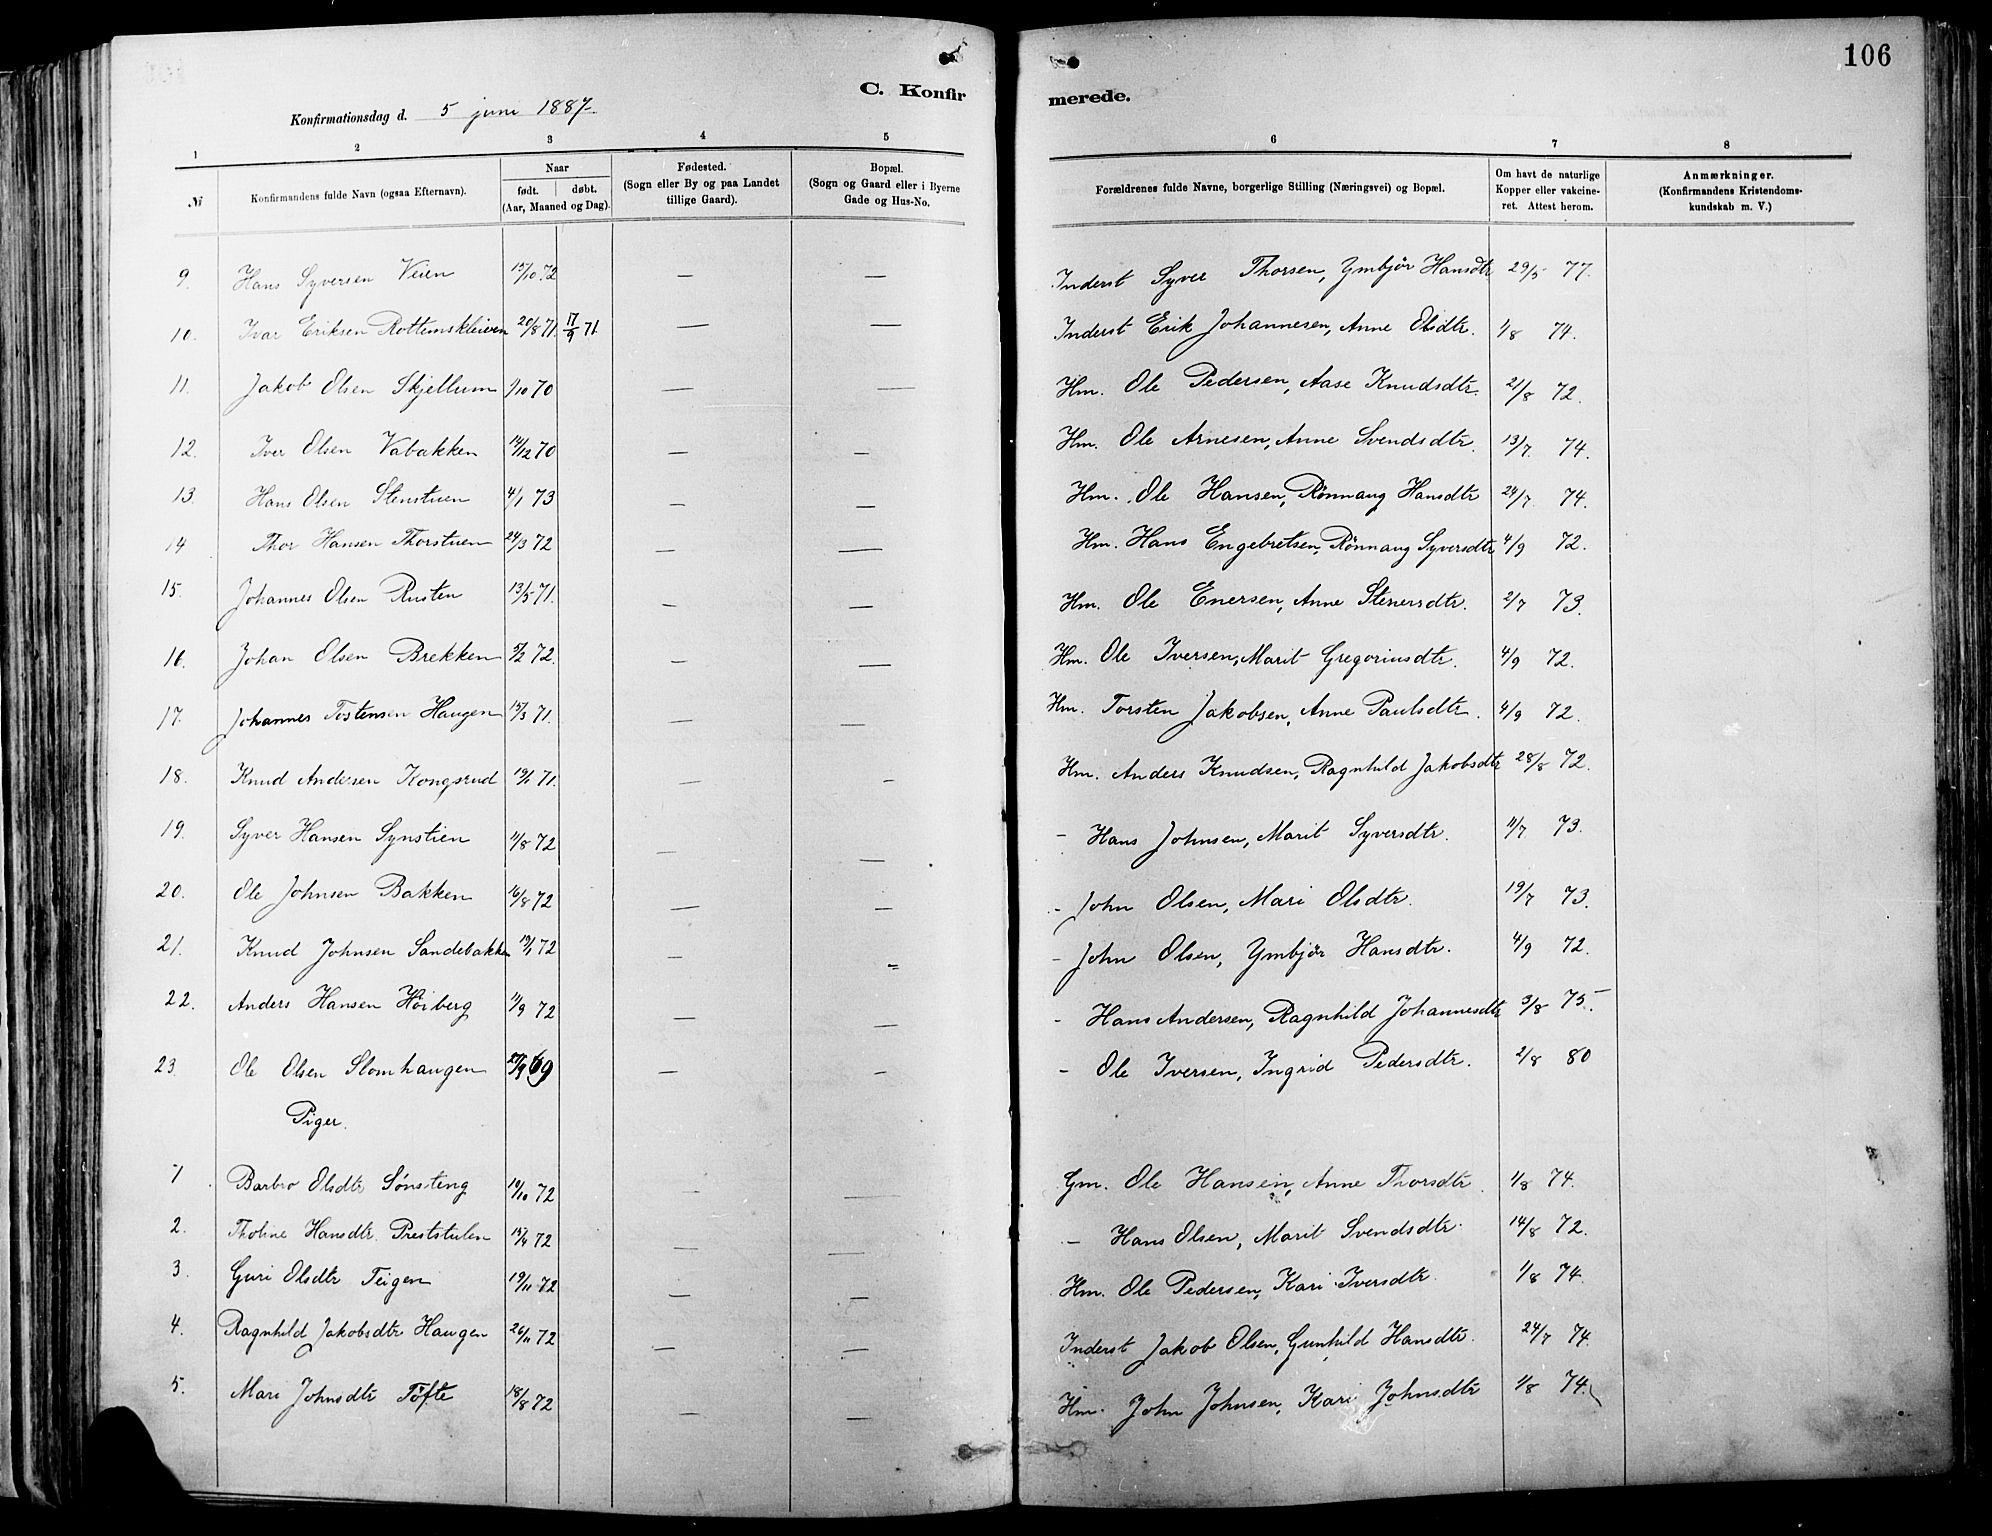 106
C. Konfirmerede.
Konfirmationsdag d. 5 juni 1887.
1 2 3 4 5 6 7 8
№ Konfirmandens fulde Navn (ogsaa Efternavn). Naar født. døbt. (Aar, Maaned og Dag). Fødested. (Sogn eller By og paa Landet tillige Gaard). Bopæl. (Sogn og Gaard eller i Byerne Gade og Hus-No. Forældrenes fulde Navne, borgerlige Stilling (Næringsvei) og Bopæl. Om havt de naturlige Kopper eller vakcineret. Attest herom. Anmærkninger. (Konfirmandens Kristendomskundskab m. V.)
9. Hans Syversen Veien 15/10 72 — — Inderst Syver Thorsen, Ymbjør Hansdtr 29/5 77.
10. Ivar Eriksen Rottumskleiven 20/8 71. 17/9 71 — — Inderst Erik Johannesen, Anne Olsdtr. 1/8 74.
11. Jakob Olsen Skjellum 1/10 70 — — Hm. Ole Pedersen, Aase Knudsdtr. 21/8 72.
12. Iver Olsen Vabakken 14/12 70 — — Hm. Ole Arnesen, Anne Svendsdtr. 13/7 74.
13. Hans Olsen Stenstuen 4/1 73 — — Hm. Ole Hansen, Rönnaug Hansdtr 24/7 74.
14 Thor Hansen Thorstuen 24/3 72 — — Hm. Hans Engebretsen, Rönnaug Syversdtr 4/9 72.
15. Johannes Olsen Rusten 13/5 71. — — Hm. Ole Enersen, Anne Stenersdtr. 2/7 73.
16. Johan Olsen Brekken 5/2 72. — — Hm. Ole Iversen, Marit Gregoriusdtr. 4/9 72.
17. Johannes Tostensen Haugen 15/3 71. — — Hm. Torsten Jakobsen, Anne Paulsdtr. 4/9 72.
18. Knud Andersen Kongsrud 71. — — Hm. Anders Knudsen, Ragnhild Jakobsdtr 28/8 72.
19. Syver Hansen Synstien 11/8 72 — — - Hans Johnsen, Marit Syversdtr. 11/7 73.
20. Ole Johnsen Bakken 16/8 72 — — - John Olsen, Mari Olsdtr. 19/7 73.
21. Knud Johnsen Sandebakken 19/1 72 — — - John Olsen, Ymbjör Hansdtr. 4/9 72.
22. Anders Hansen Höiberg 11/9 72 — — - Hans Andersen, Ragnhild Johannesdtr 3/8 75.
23. Ole Olsen Slomhaugen 69 — — - Ole Iversen, Ingrid Pedersdtr. 2/8 80
Piger.
1 Barbro Olsdtr Sönsteng 19/10 72 — — Gm. Ole Hansen, Anne Thorsdtr. 1/8 74.
2. Tholine Hansdtr. Preststulen 15/4 72 — — - Hans Olsen, Marit Svendsdtr. 14/8 72.
3. Guri Olsdtr Teigen 19/11 72 — — Hm. Ole Pedersen, Kari Iversdtr. 1/8 74.
4. Ragnhild Jakobsdtr Haugen 26/11 72 — — Inderst Jakob Olsen, Gunhild Hansdtr. 24/7 74.
5. Mari Johnsdtr Töfte 18/8 72 — — Hm. John Johnsen, Kari Johnsdtr 1/8 74.